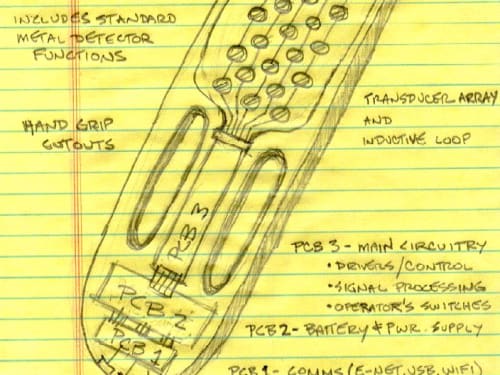 INCLUDES STANDARD
METAL DETECTOR
FUNCTIONS
TRANSDUCER ARRAY
AND
INDUCTIVE LOOP
HAND GRIP
CUTOUTS
PCB 3
PCB 2
PCB 1
PCB 3 - MAIN CIRCUITRY
• DRIVERS/CONTROL
• SIGNAL PROCESSING
• OPERATOR'S SWITCHES
PCB 2 - BATTERY & PWR. SUPPLY
PCB 1 - COMMS (E-NET, USB, WIFI)